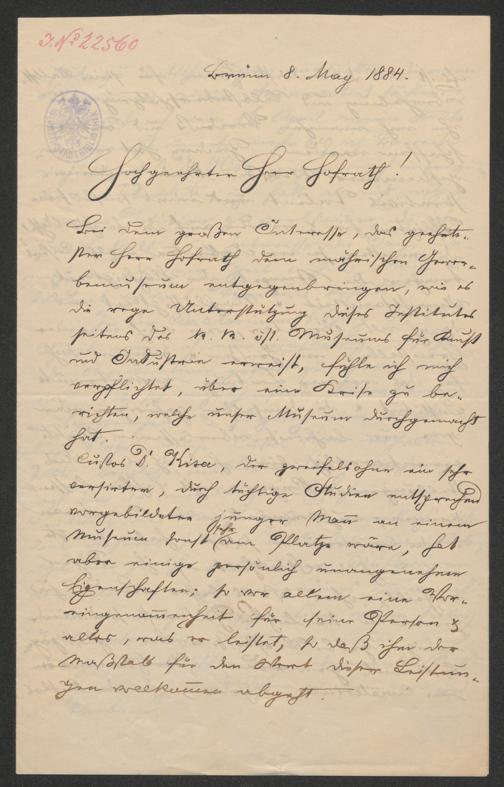 J. № 22560
Brünn 8. May 1884.
Hochgeehrter Herr Hofrath!
Bei dem großen Interesse, das geehrte-
ster Herr Hofrath dem mährischen Gewer-
bemuseum entgegenbringen, wie es
die rege Unterstützung dieses Institutes
seitens des k. k. öst. Museums für Kunst
und Industrie erweist, fühle ich mich
verpflichtet, über eine Krise zu be-
richten, welche unser Museum durchgemacht
hat.
Custos Dr. Kisa, der zweifelsohne ein sehr
versirter, durch tüchtige Studien entsprechend
vorgebildeter junger Mann an einem
Museum sonst sehr am Platze wäre, hat
aber einige persönlich unangenehme
Eigenschaften; so vor allem eine Vor-
eingenommenheit für seine Person &
alles, was er leistet, so daß ihm der
Maßstab für den Wert dieser Leistun-
gen vollkommen abgeht.